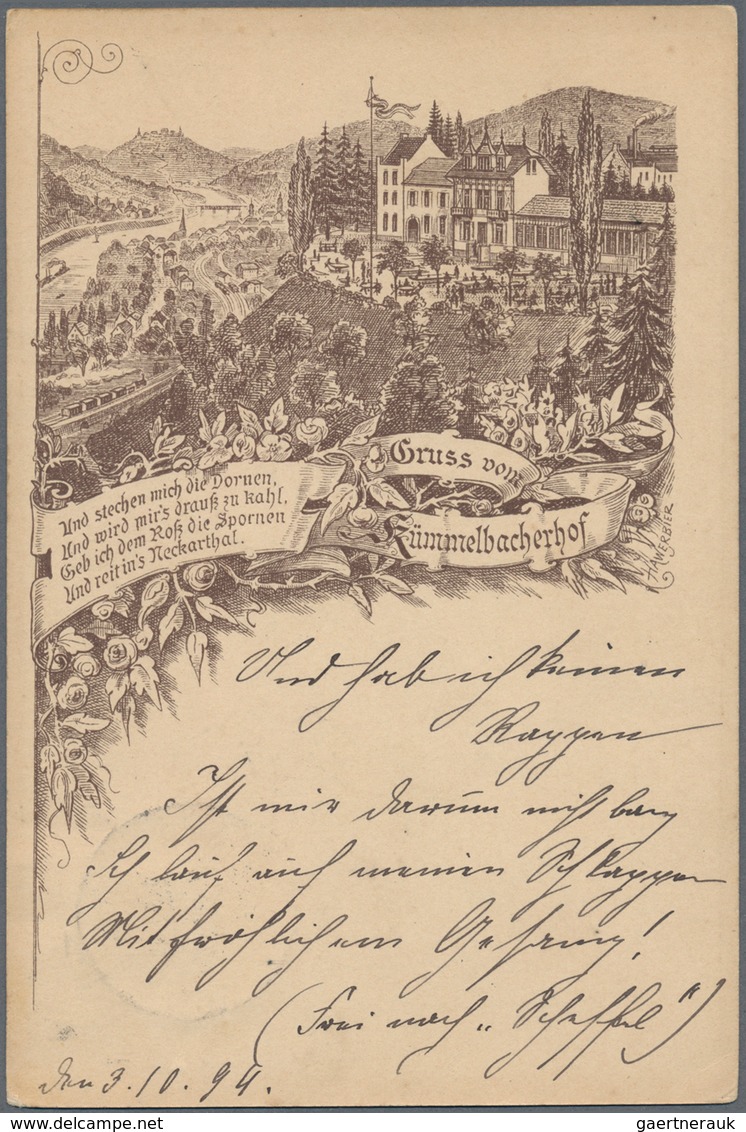 Gruss vom
Kümmelbacherhof
Und stechen mich die Dornen,
Und wird mir's drauß zu kahl,
Geb ich dem Roß die Spornen
Und reit in's Neckarthal.
HAVERBIER
Und hab ich keinen
Rappen
Ist mir darum nicht bang
Ich lauf auf meinen Schlappen
Mit fröhlichem Gesang!
(Frei nach „Scheffel")
den 3. 10. 94.
gaertnerauk